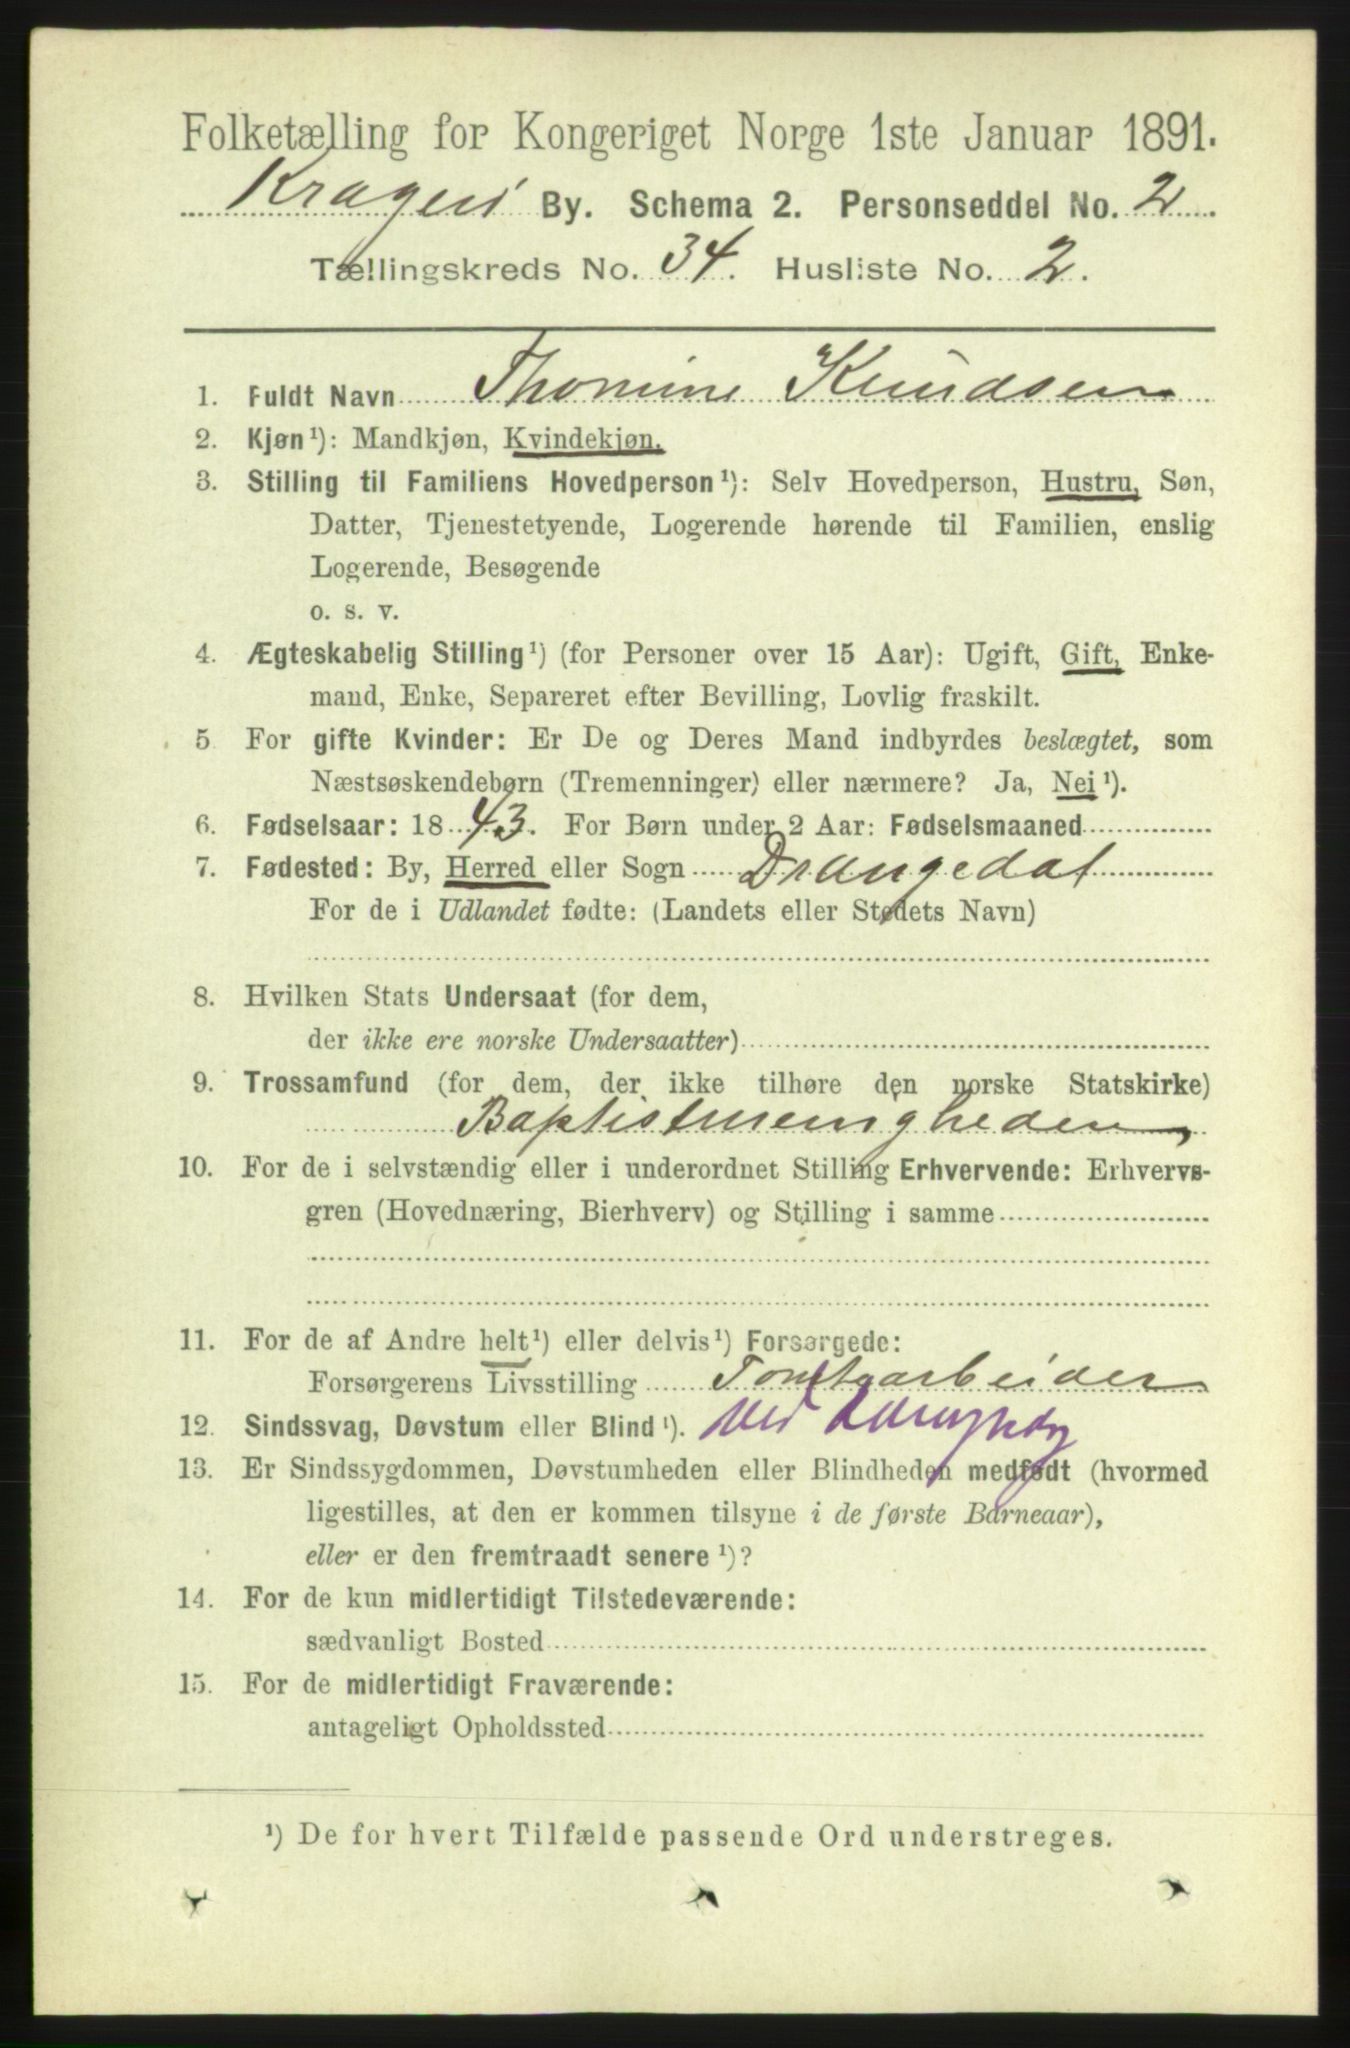 Folketælling for Kongeriget Norge 1ste Januar 1891.
Kragerø By. Schema 2. Personseddel No. 2
Tællingskreds No. 34. Husliste No. 2.
1. Fuldt Navn Thomine Knudsen
2. Kjøn ¹): Mandkjøn, Kvindekjøn.
3. Stilling til Familiens Hovedperson ¹): Selv Hovedperson, Hustru, Søn,
Datter, Tjenestetyende, Logerende hørende til Familien, enslig
Logerende, Besøgende
o. s. v.
4. Ægteskabelig Stilling ¹) (for Personer over 15 Aar): Ugift, Gift, Enke-
mand, Enke, Separeret efter Bevilling, Lovlig fraskilt.
5 For gifte Kvinder: Er De og Deres Mand indbyrdes beslægtet, som
Næstsøskendebørn (Tremenninger) eller nærmere? Ja, Nei ¹).
6. Fødselsaar: 1843. For Børn under 2 Aar: Fødselsmaaned
7. Fødested: By, Herred eller Sogn Drangedal
For de i Udlandet fødte: (Landets eller Stedets Navn)
8. Hvilken Stats Undersaat (for dem,
der ikke ere norske Undersaatter)
9. Trossamfund (for dem, der ikke tilhøre den norske Statskirke)
10. For de i selvstændig eller i underordnet Stilling Erhvervende: Erhvervs-
gren (Hovednæring, Bierhverv) og Stilling i samme
11. For de af Andre helt ¹) eller delvis ¹) Forsørgede:
Forsørgerens Livsstilling Tomtearbeider
12. Sindssvag, Døvstum eller Blind ¹). ved
13. Er Sindssygdommen, Døvstumheden eller Blindheden medfødt (hvormed
ligestilles, at den er kommen tilsyne i de første Barneaar),
eller er den fremtraadt senere ¹)?
14. For de kun midlertidigt Tilstedeværende:
sædvanligt Bosted
15. For de midlertidigt Fraværende:
antageligt Opholdssted
¹) De for hvert Tilfælde passende Ord understreges.